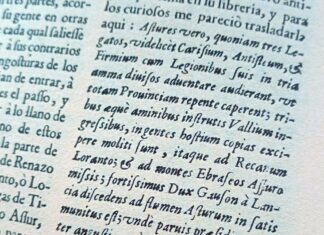 rtes, acor-
su gente en otras
cada qual saliesse
à sus contrarios
ngosturas de los
an de entrar, à
es el passo, y
à lo llano de
no de estos
la parte de
de Renazo
nto, ò Lo-
as de Ti-
Astur,
en su libreria, y para
los curiosos me pareció trasladarla
aqui: Astures vero, quoniam tres Le-
gatos, videlicèt Carisium, Antistium, &
Firmium cum Legionibus suis in tria
amma divisos adventare audierant, vt
totam Provinciam repente caperent; tri-
bus aquè aminibus instrutis Vallium in-
gressibus, ingentes hostium copias exci-
pere moliti sunt, itaque ad Recatum
Lorantos; & ad montes Ebraseos Assuro
missis; fortissimus Dux Gauson à Lan-
cia discedens ad flumen Asturum in satis
munitus est; vnde paruis præsidi